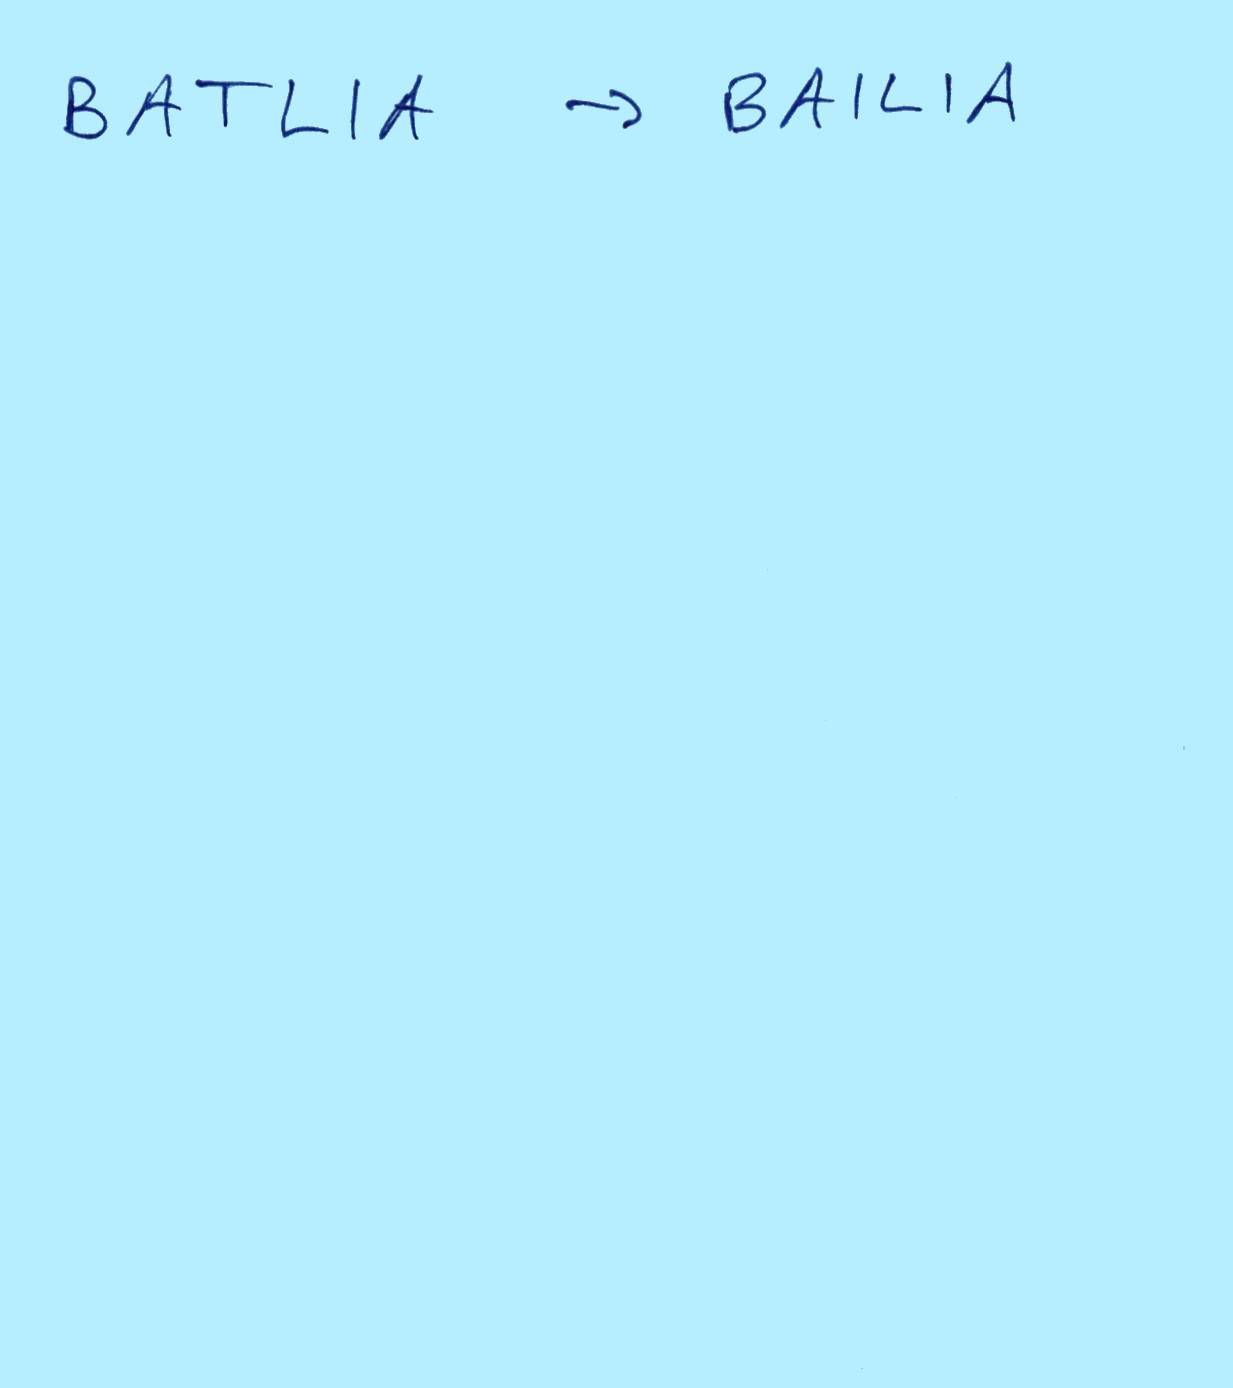 BATLIA → BAILIA